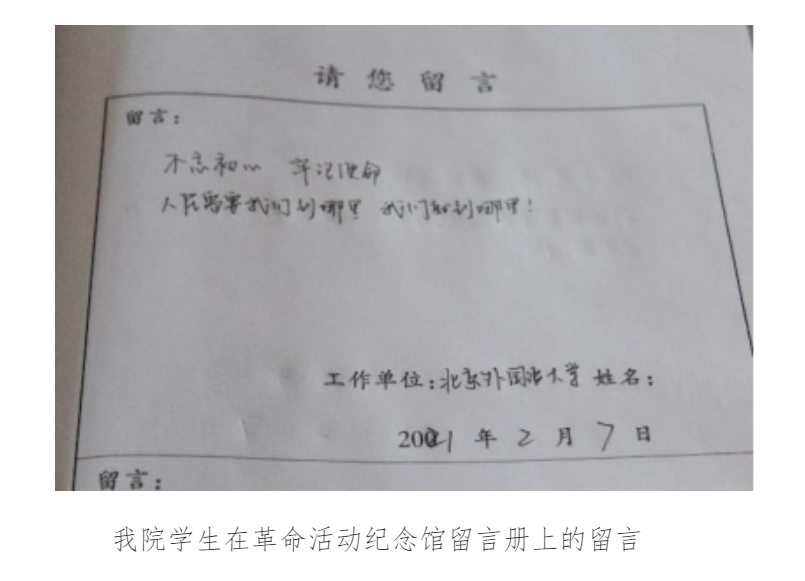 请您留言
留言：
不忘初心 牢记使命
人民需要我们到哪里 我们就到哪里！
工作单位：北京外国语大学 姓名：
2021 年 2 月 7 日
留言：
我院学生在革命活动纪念馆留言册上的留言